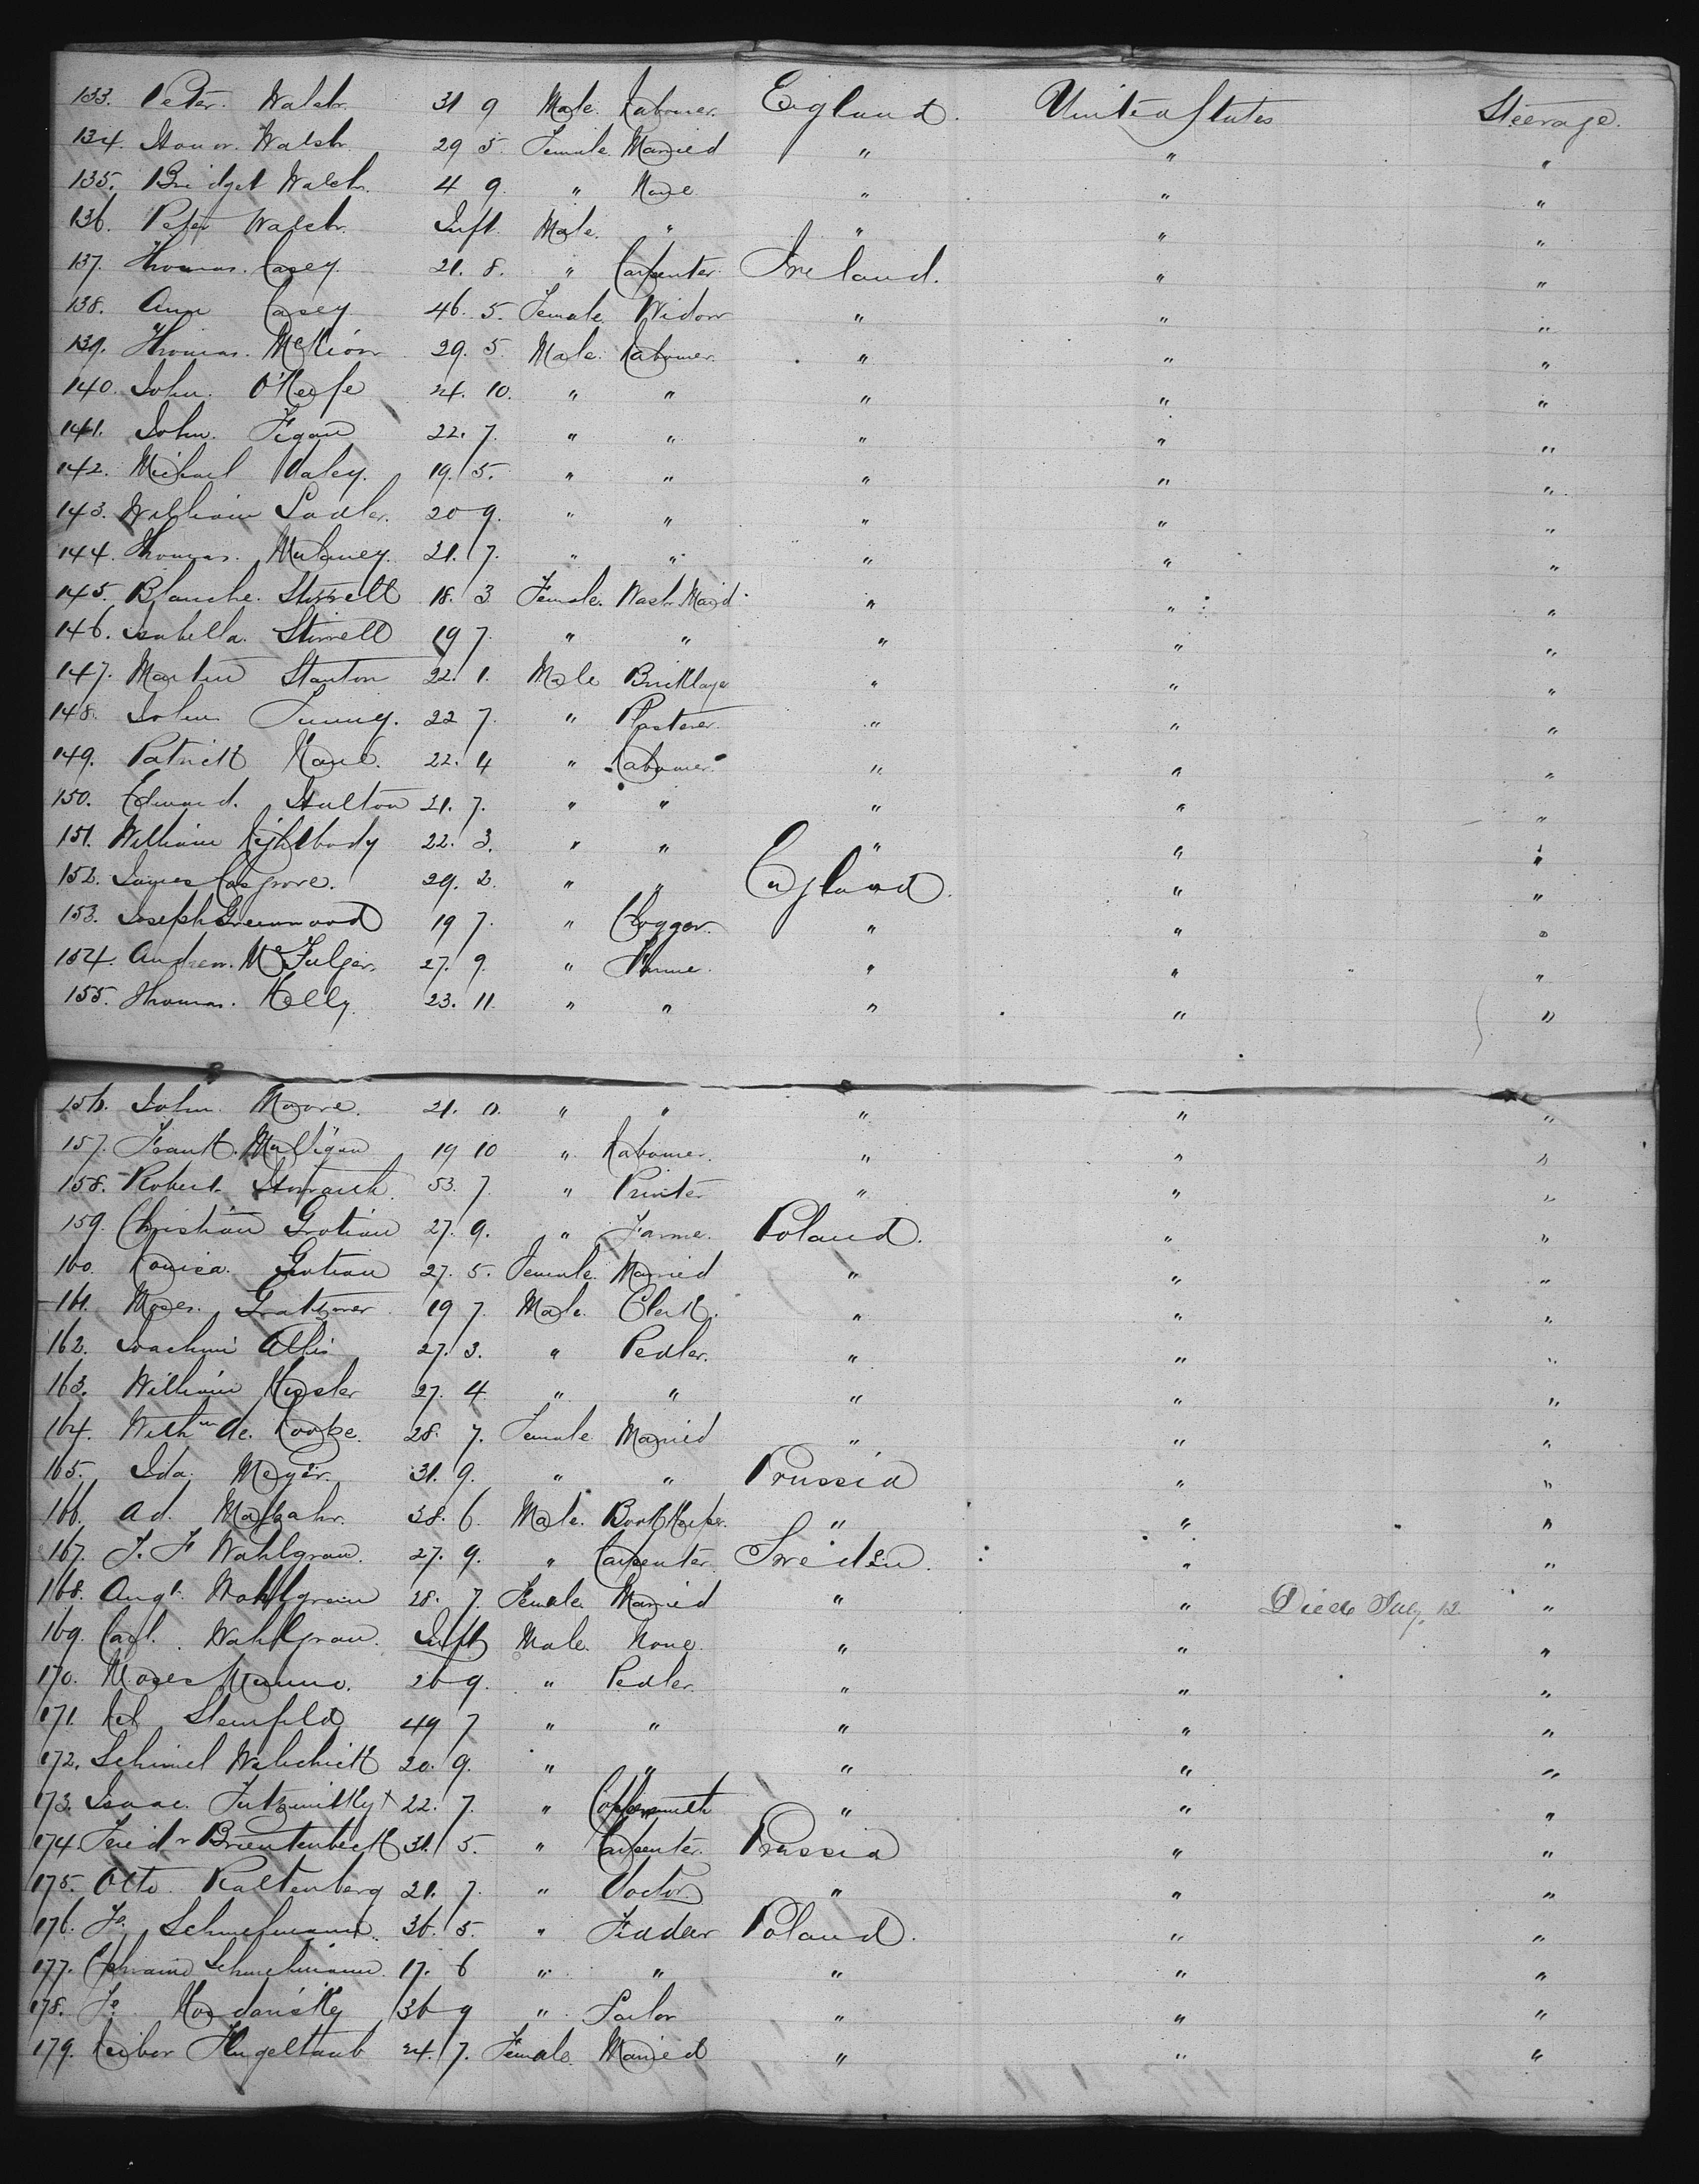 133. Peter Walsh 31 9 Male Labourer England United States Steerage
134. Honor Walsh 29 5 Female Married " " "
135. Bridget Walsh 4 9 " None " " "
136. Peter Walsh Inft Male " " " "
137. Thomas Casey 21. 8. " Carpenter Ireland. " "
138. Ann Casey 46. 5. Female Widow " " "
139. Thomas 29. 5 Male Labourer " " "
140. John O'Keefe 24. 10. " " " " "
141. John Figan 22. 7. " " " " "
142. Michael Daley 19. 5. " " " " "
143. William Sadler 20 9. " " " " "
144. Thomas Mulaney 21. 7. " " " " "
145. Blanche Stirrett 18. 3 Female Wash Maid " " "
146. Isabella Stirrett 19 7 " " " " "
147. Martin Stanton 22. 1. Male Bricklaye " " "
148. John Tunny. 22 7. " Plasterer " " "
149. Patrick Kane. 22. 4 " Labourer " " "
150. Edward Hulton 21. 7. " " " " "
151. William Lightbody 22. 3. " " " " "
152. James Cosgrove. 29. 2. " " England " "
153. Joseph Greenwood 19 7. " Clogger " " "
154. Andrew 27. 9. " " " "
155. Thomas Kelly 23. 11. " " " " "
156. John Moore. 21. " " " " "
157. Frank Mulligan 19 10 " Labourer. " " "
158. Robert 53. 7. " Printer " " "
159. Christian Grotian 27. 9. " Farme. Poland. " "
160. Louisa Grotian 27. 5. Female Married " " "
161. Moses Gratzover 19 7. Male Clerk. " " "
162. Joachim 27. 3. " Pedler. " " "
163. William Kesler 27. 4 " " " " "
164. 28. 7. Female Married " " "
165. Ida Meyer. 31. 9. " " Prussia " "
166. Ad. Malzahr. 38. 6. Male Book Keeper. " " "
167. J. F Wahlgran. 27. 9. " Carpenter Sweden. " "
168. Augt Wahlgran 28. 7. Female Married " " Died July. 12. "
169. Carl. Wahlgran. Inft Male None " " "
170. Moses 26 9. " Pedler " " "
171. Stenfeld 49 7 " " " " "
172. Schimel 20. 9. " " " " "
173. Isaac. 22. 7. " Coppersmith " " "
174. Freidr Brientenbeck 31. 5. " Carpenter Prussia " "
175. Otto Raltenberg 21. 7. " Doctor " " "
176. 36. 5. " Poland. " "
177. 17. 6 " " " " "
178. 36 9 " " " "
179. Hugeltaub 24. 7. Female Married " " "